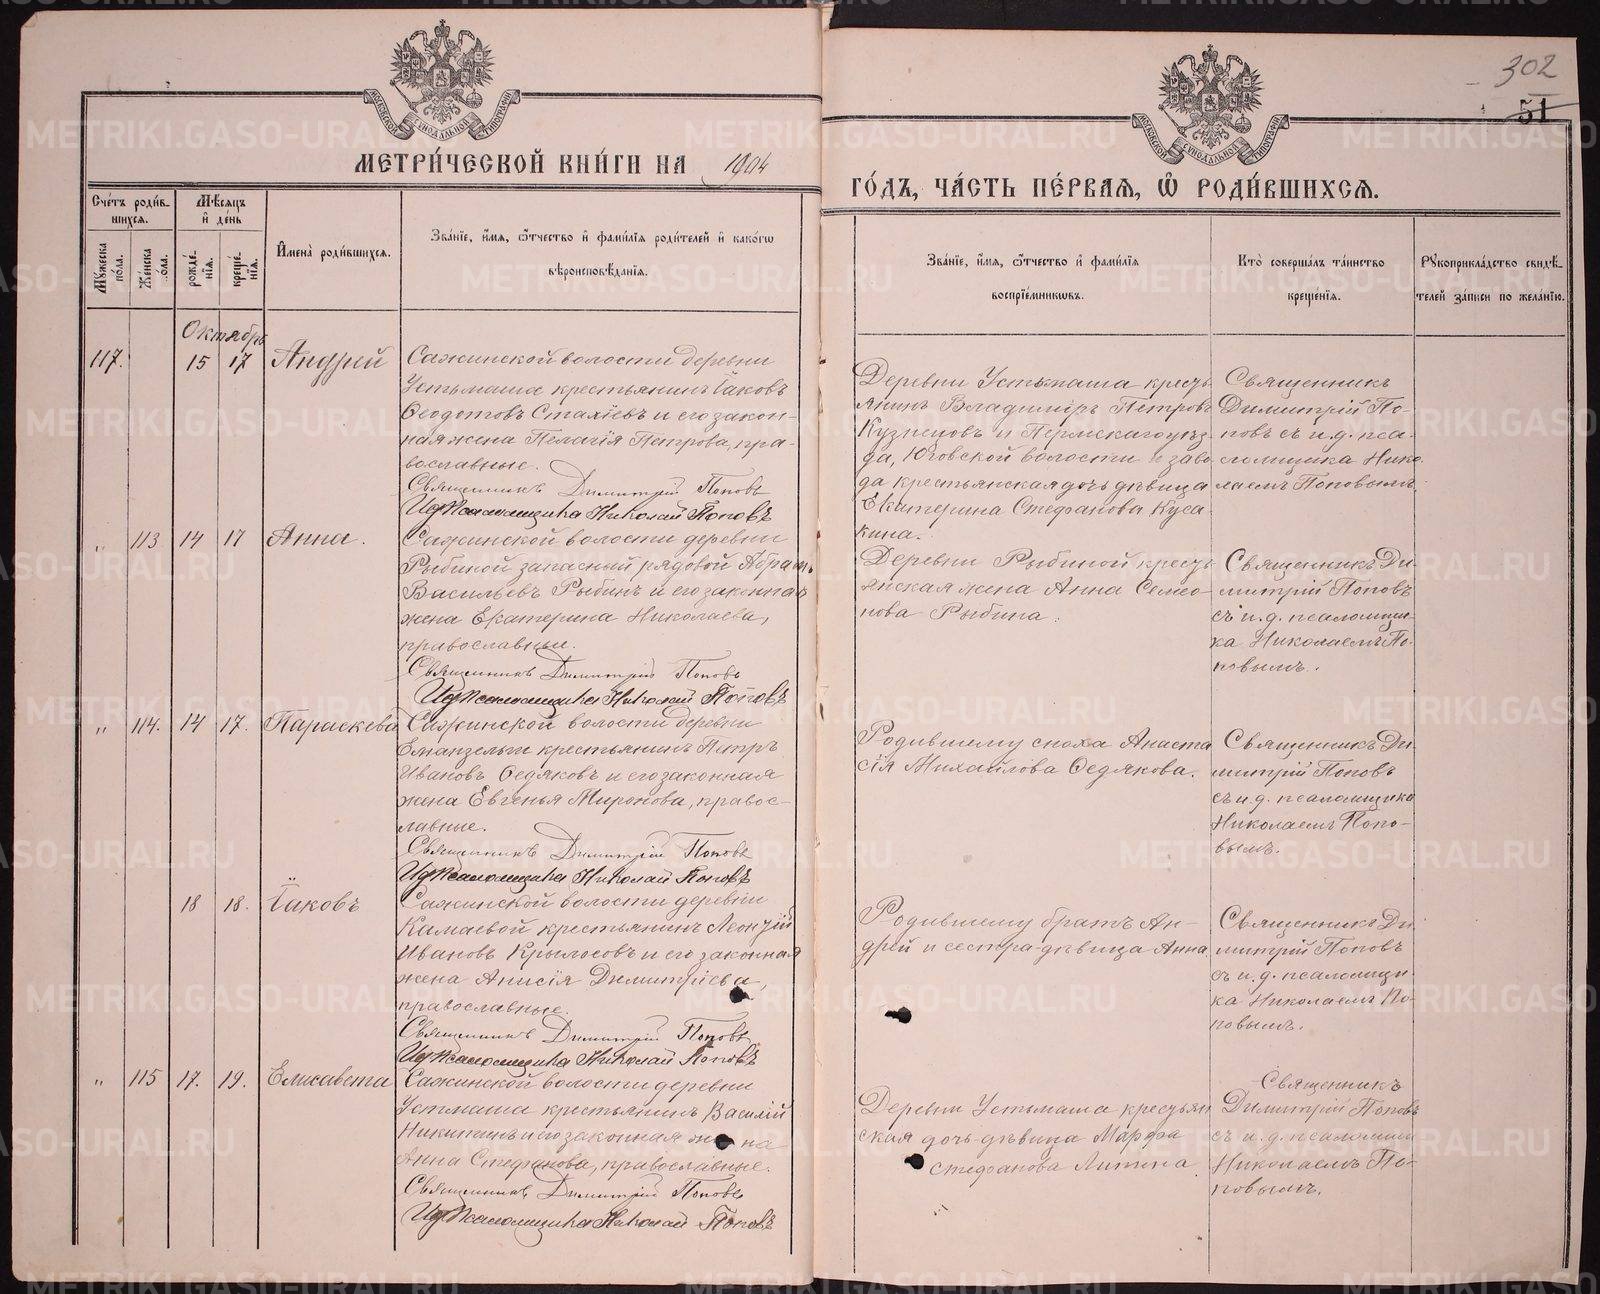 302
51
МЕТРИ́ЧЕСКОЙ КНИ́ГИ НА 1904
ГО́ДЪ, ЧА́СТЬ ПЕ́РВАЯ, Ѡ РОДИ́ВШИХСЯ.
Сче́тъ роди́вшихся.
Му́жеска по́ла.
Же́нска по́ла.
Мѣ́сяцъ и де́нь
рожде́нїя.
креще́нїя.
Имена̀ роди́вшихся.
Зва́нїе, и́мя, ѻ́тчество и фами́лїя роди́телей и како́гѡ
вѣроисповѣ́данїя.
Зва́нїе, и́мя, ѻ́тчество и фами́лїя
воспрїе́мникѡвъ.
Кто̀ соверша́лъ та́инство
креще́нїя.
Рукоприкла́дство свидѣ́-
телей за́писи по жела́нїю.
Октябрь
117. 15 17 Андрей
Сажинской волости деревни
Устьмаша крестьянинъ Іаковъ
Ѳеодотовъ Стахіевъ и его закон-
ная жена Пелагія Петрова, пра-
вославные.
Священникъ Димитрій Поповъ
Ид Псаломщика Николай Поповъ
Деревни Устьмаша кресть
янинъ Владиміръ Петровъ
Кузнецовъ и Пермскаго уѣз
да, Юговской волости и заво
да крестьянская дочь дѣвица
Екатерина Стефанова Куса-
кина.
Священникъ
Димитрій По-
повъ съ и.д. пса-
ломщика Нико-
лаемъ Поповымъ
„ 113 14 17 Анна.
Сажинской волости деревни
Рыбиной запасный рядовой Абрамъ
Васильевъ Рыбинъ и его законная
жена Екатерина Николаева,
православные.
Священникъ Димитрій Поповъ
Ид Псаломщика Николай Поповъ
Деревни Рыбиной кресть
янская жена Анна Семео-
нова Рыбина.
Священникъ Ди-
митрій Поповъ
съ и.д. псаломщи
ка Николаемъ По-
повымъ.
„ 114. 14 17. Параскева
Сажинской волости деревни
Еманзельги крестьянинъ Петръ
Ивановъ Ѳедяковъ и его законная
жена Евгенья Миронова, правос-
лавные.
Священникъ Димитрій Поповъ
Ид Псаломщика Николай Поповъ
Родившему сноха Анаста
сія Михайлова Ѳедякова.
Священникъ Ди-
митрій Поповъ
съ и.д. псаломщика
Николаемъ Попо-
вымъ.
18 18. Іаковъ
Сажинской волости деревни
Камаевой крестьянинъ Леонтій
Ивановъ Крылосовъ и его законная
жена Анисія Димитріева,
православные.
Священникъ Димитрій Поповъ
Ид Псаломщика Николай Поповъ
Родившему братъ Ан-
дрей и сестра-дѣвица Анна
Священникъ Ди
митрій Поповъ
съ и.д. псаломщи-
ка Николаемъ По-
повымъ.
„ 115 17. 19. Елисавета
Сажинской волости деревни
Устьмаша крестьянинъ Василій
Никитинъ и его законная жена
Анна Стефанова, православные.
Священникъ Димитрій Поповъ
Ид Псаломщика Николай Поповъ
Деревни Устьмаша крестьян
ская дочь-дѣвица Марфа
Стефанова Литина
Священникъ
Димитрій Поповъ
съ и.д. псаломщи
Николаемъ По-
повымъ.
METRIKI.GASO-URAL.RU